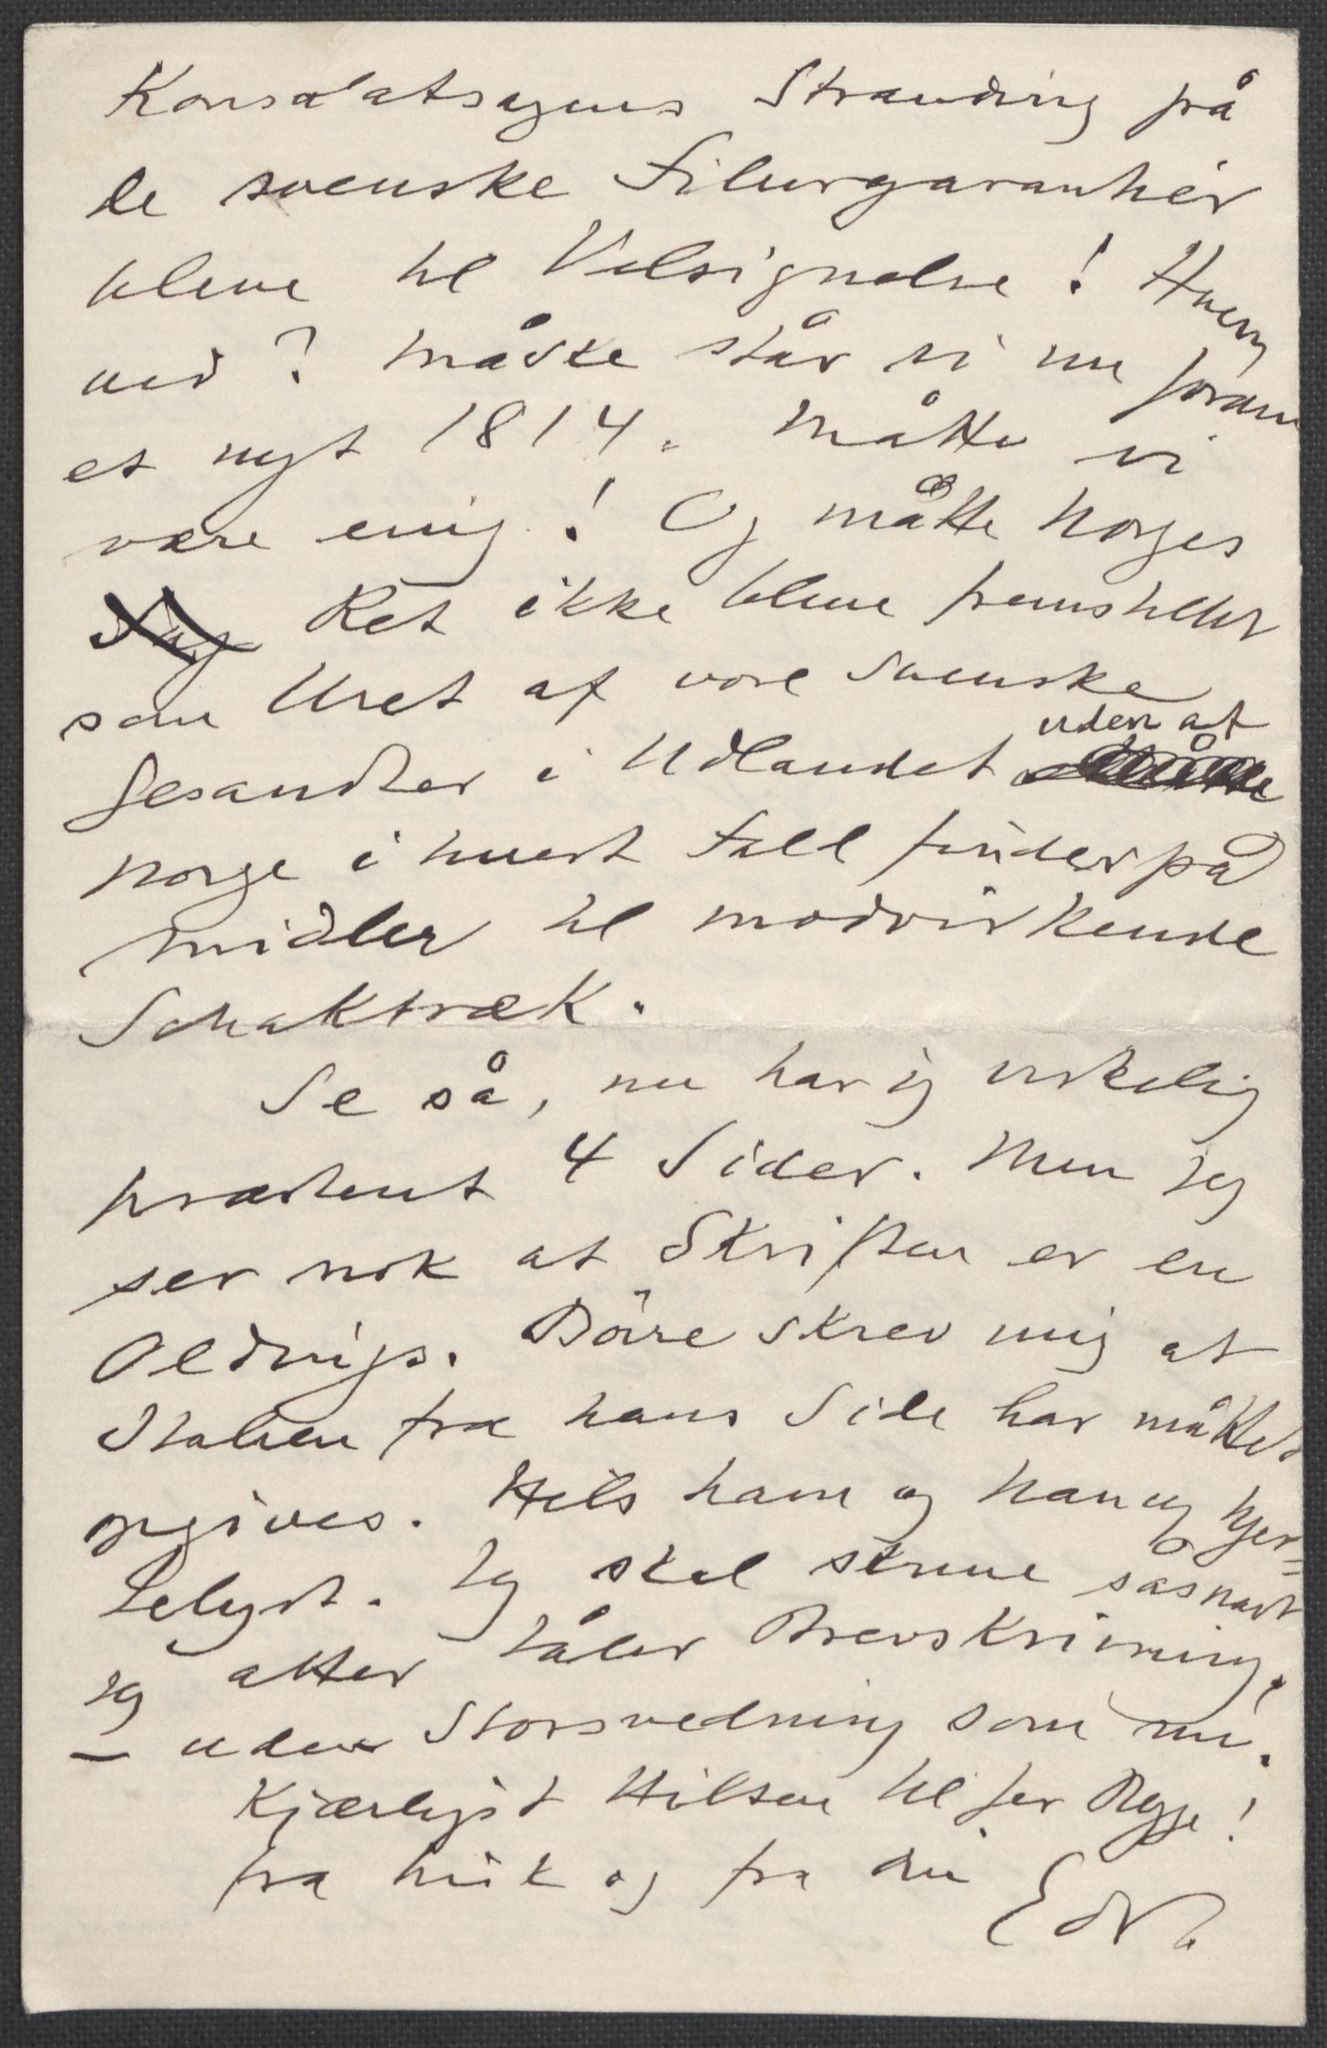 Konsulatsagens Stranding på
de svenske Filurgarantier
blive til Velsignelse! Hvem
ved? Måske står vi nu foran
et nyt 1814. Måtte vi
være enig! Og måtte Norges
Ret ikke blive fremstillet
som Uret af vore svenske
Gesandter i Udlandet uden at
Norge i hvert Fald finder på
Midler til modvirkende
Schaktræk.
Se så, nu har jeg virkelig
præsteret 4 Sider. Men jeg
ser nok at Skriften er en
Oldings. Börre skrev mig at
Italien fra hans Side har måttet
opgives. Hils ham og Nancy hjer=
teligst. Jeg skal skrive såsnart
jeg atter tåler Brevskrivning,
– uden Storsvedning som nu.
Kjærligst Hilsen til Jer Begge!
fra      og fra din Edv.